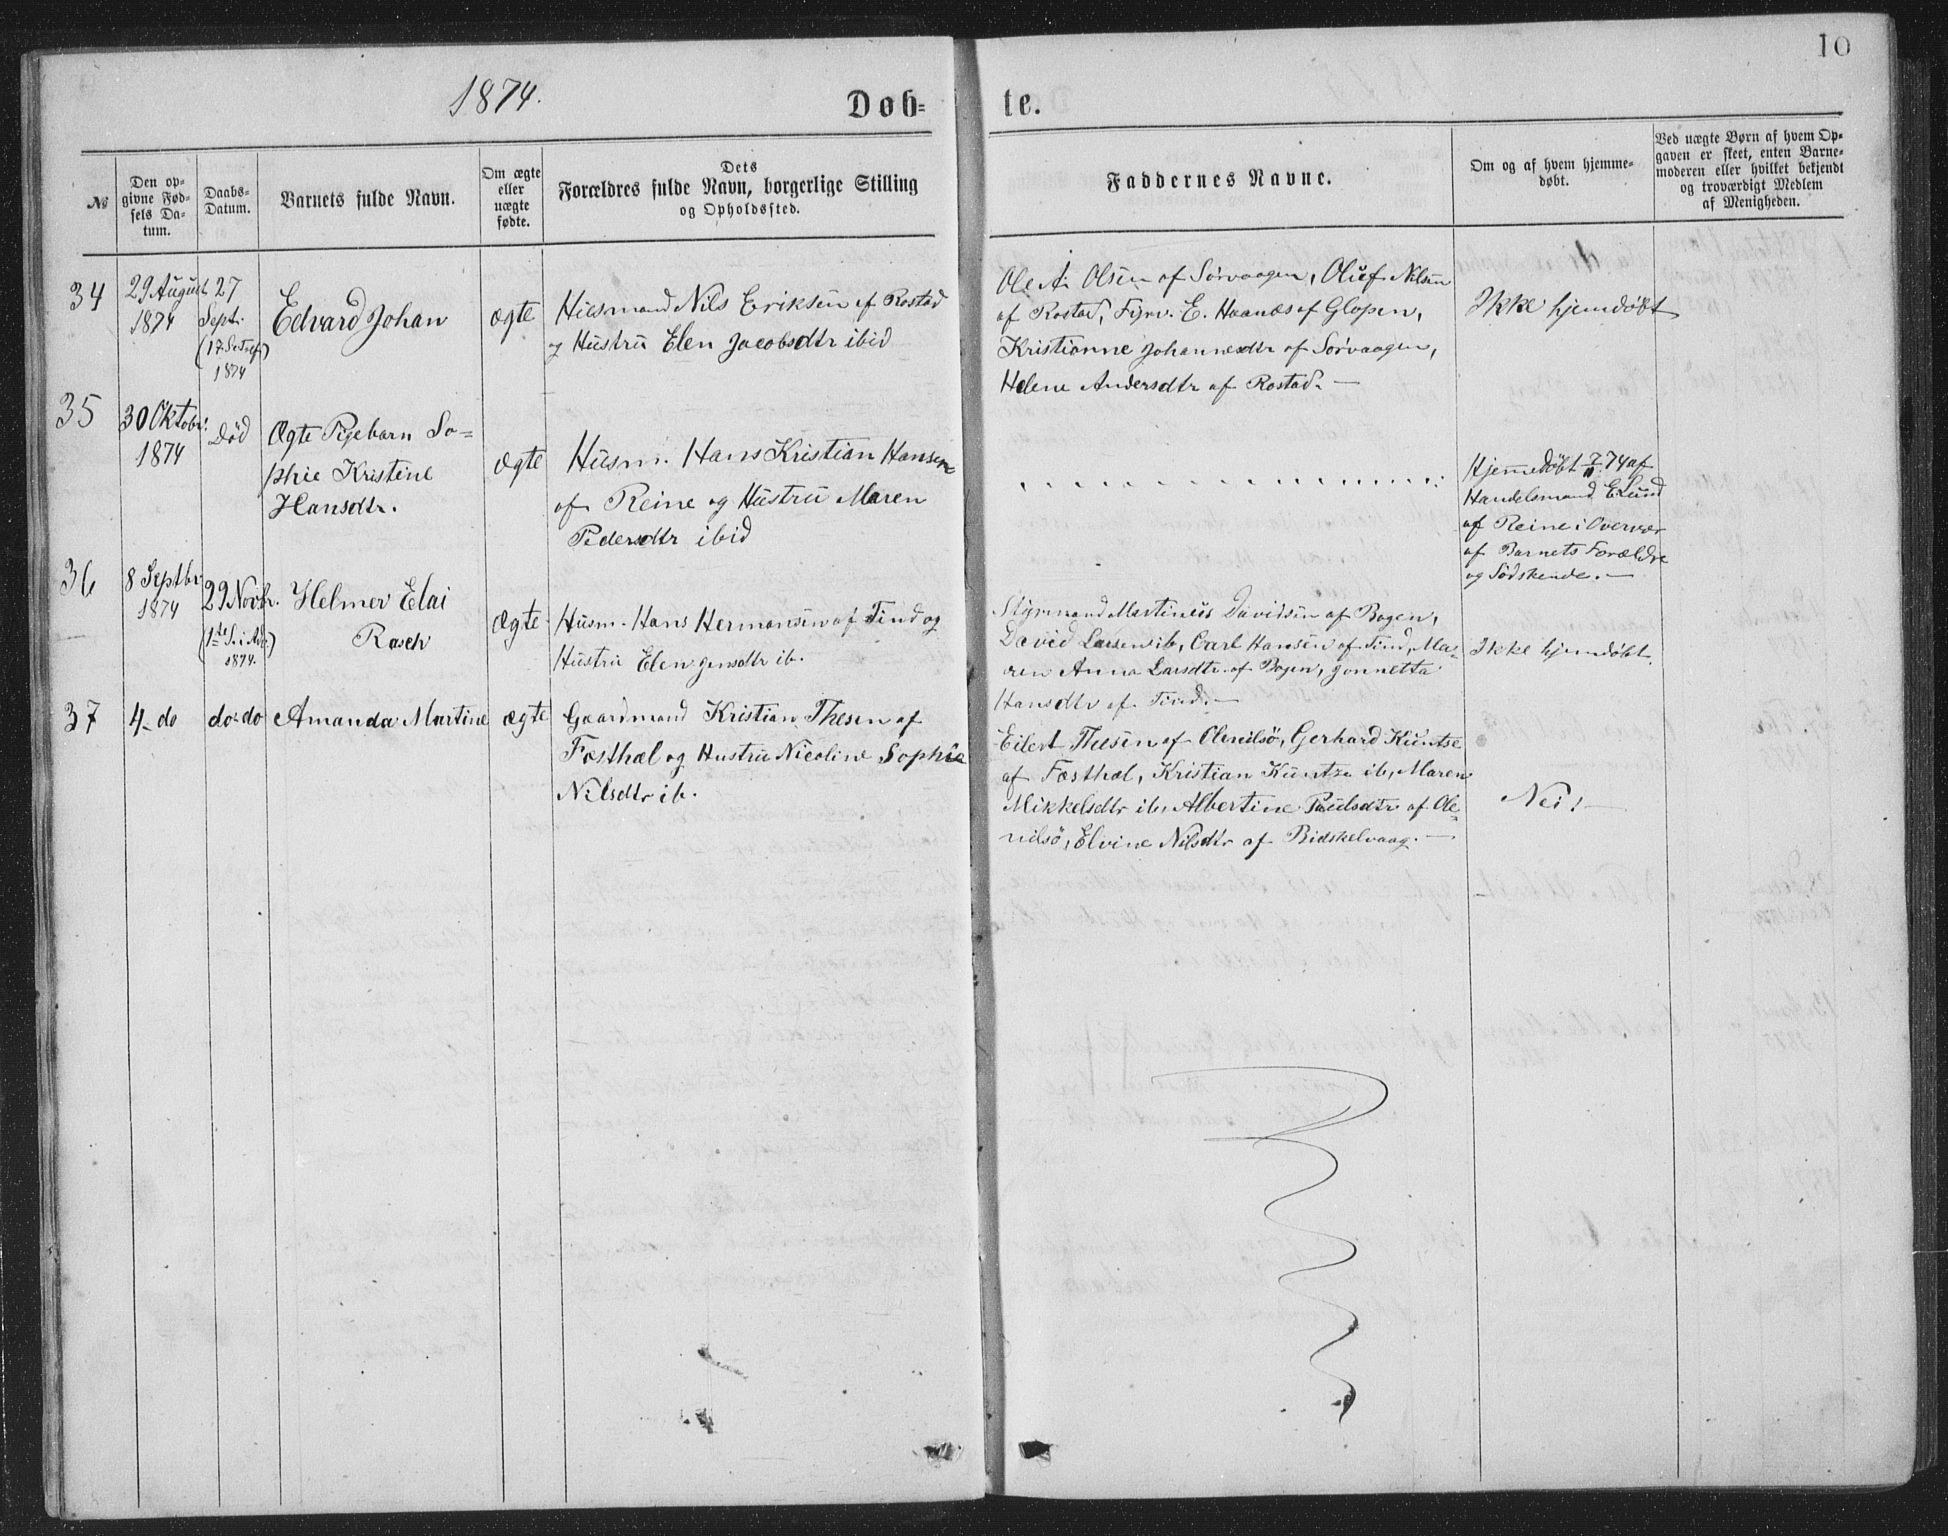 10
1874.
Døb-
te.
№
Den op-
givne Fød-
sels Da-
tum.
Daabs-
Datum.
Barnets fulde Navn.
Om ægte
eller
uægte
fødte.
Dets
Forældres fulde Navn, borgerlige Stilling
og Opholdssted.
Faddernes Navne.
Om og af hvem hjemme-
døbt.
Ved uægte Børn af hvem Op-
gaven er skeet, enten Barne-
moderen eller hvilket bekjendt
og troværdigt Medlem
af Menigheden.
34
29 August
1874
27
Sept.
1874
Edvard Johan
ægte
Husmand Nils Eriksen af Rostad
og Hustru Elen Jacobsdtr ibid
Ole A. Olsen af Sørvaagen, Oluf Nilsen
af Rostad, Fyrv. E. Haanæs af Glopen,
Kristianne Johannesdtr af Sørvaagen,
Helene Andersdtr af Rostad. —
Ikke hjemdøbt
35
30 Oktobr.
1874
Død
Ægte Pigebarn So-
phie Kristine
Hansdtr.
Ægte
Husm. Hans Kristian Hansen
af Reine og Hustru Maren
Pedersdtr ibid
Hjemmedøbt 7/11 74 af
Handelsmand E Lund
af Reine i Overvær
af Barnets Forældre
og Sødskende. —
36
8 Septbr
1874
29 Novbr.
(1ste S. i Adv.)
1874.
Helmer Elai
Rasch
Ægte
Husm. Hans Hermansen af Tind og
Hustru Elen Jensdtr ib.
Styrmand Martinus Davidsen af Bogen,
David Larsen ib, Carl Hansen af Tind, Ma-
ren Anna Larsdtr af Bogen, Jonnetta
Hansdtr af Tind. —
Ikke hjemdøbt.
37
4 - do
do: do
Amanda Martine
ægte
Gaardmand Kristian Thesen af
Fæsthæl og Hustru Nicoline Sophie
Nilsdtr ib.
Eilert Thesen af Olenilsø, Gerhard Kuntse
af Fæsthæl, Kristian Kuntze ib, Maren
Mikkelsdtr ib, Albertine Paulsdtr af Ole-
nilsø, Elvine Nilsdtr af Bidskelvaag. —
Nei! —